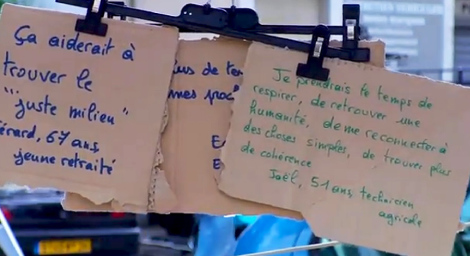 Ça aiderait à
trouver le
"juste milieu"
érard, 67 ans
jeune retraité
us de te
mes proc
Je prendrais le temps de
respirer, de retrouver une
humanité, de me reconnecter à
des choses simples, de trouver plus
de cohérence
Joël, 51 ans technicien
agricole